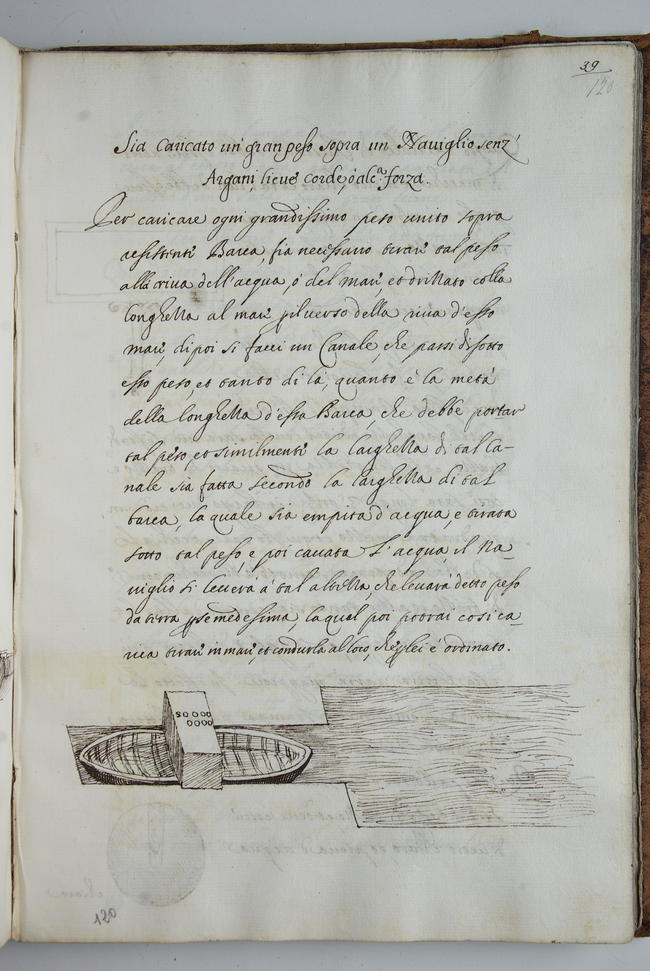 39
120
Sia Caricato un' gran peso sopra un Naviglio senz'
Argani, lieve, corde, ò alc.ª forza.
Per caricare ogni grandissimo peso unito sopra
resistente Barca, fia necessario tirare tal peso
alla riva dell'acqua, ò del mare, et drittato colla
longhezza al mare p il verso della riva d'esso
mare, dipoi si facci un Canale, che passi di sotto
esso peso, et tanto di là, quanto è la metà
della longhezza d'essa Barca, che debbe portar
tal peso, et similmente la larghezza di tal Ca-
nale sia fatta secondo la larghezza di tal
barca, la quale sia empita d'acqua, e tirata
sotto tal peso, e poi cavata l'acqua, il Na-
viglio si leverà à tal altezza, che levarà detto peso
da terra p se medesima, la qual poi potrai così ca-
rica tirare in mare, et condurla al loco, che p lei è ordinato.
120